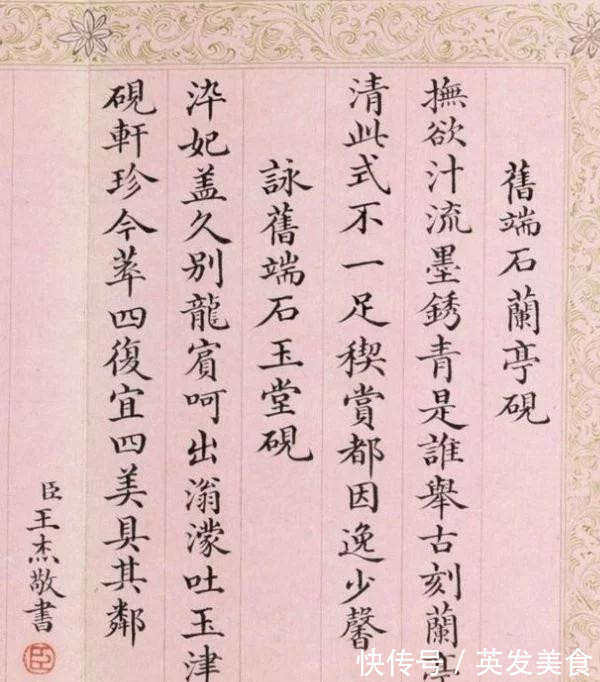 舊端石蘭亭硯
撫欲汁流墨銹青是誰舉古刻蘭亭
清此式不一足稧賞都因逸少馨
詠舊端石玉堂硯
泮妃盖久别龍賓呵出滃濛吐玉津
硯軒珍今萃四復宜四美具其鄰
臣王杰敬書
臣
快传号 / 英发美食